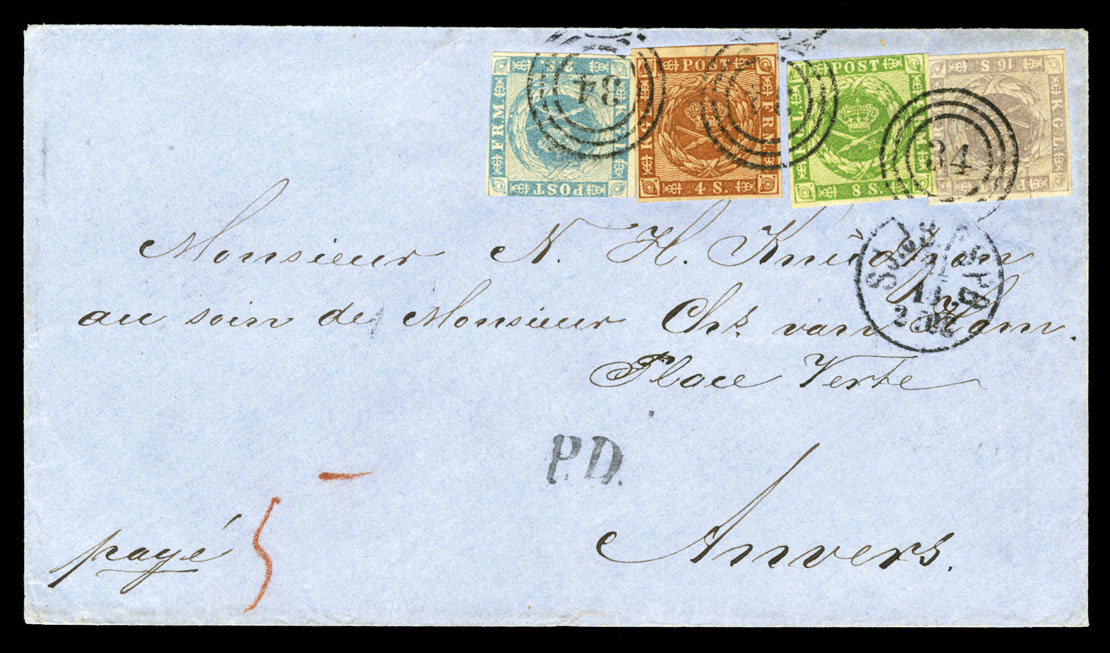 2 S.
FRM.
K
POST
POST
K. G
FRM
4 S.
POST
8 S.
16 S
K.G.L.
34
34
Monsieur N. H. Knudtzon
au soin de Monsieur Chs. van Ham.
Place Verte
P.D.
Anvers.
payé 5